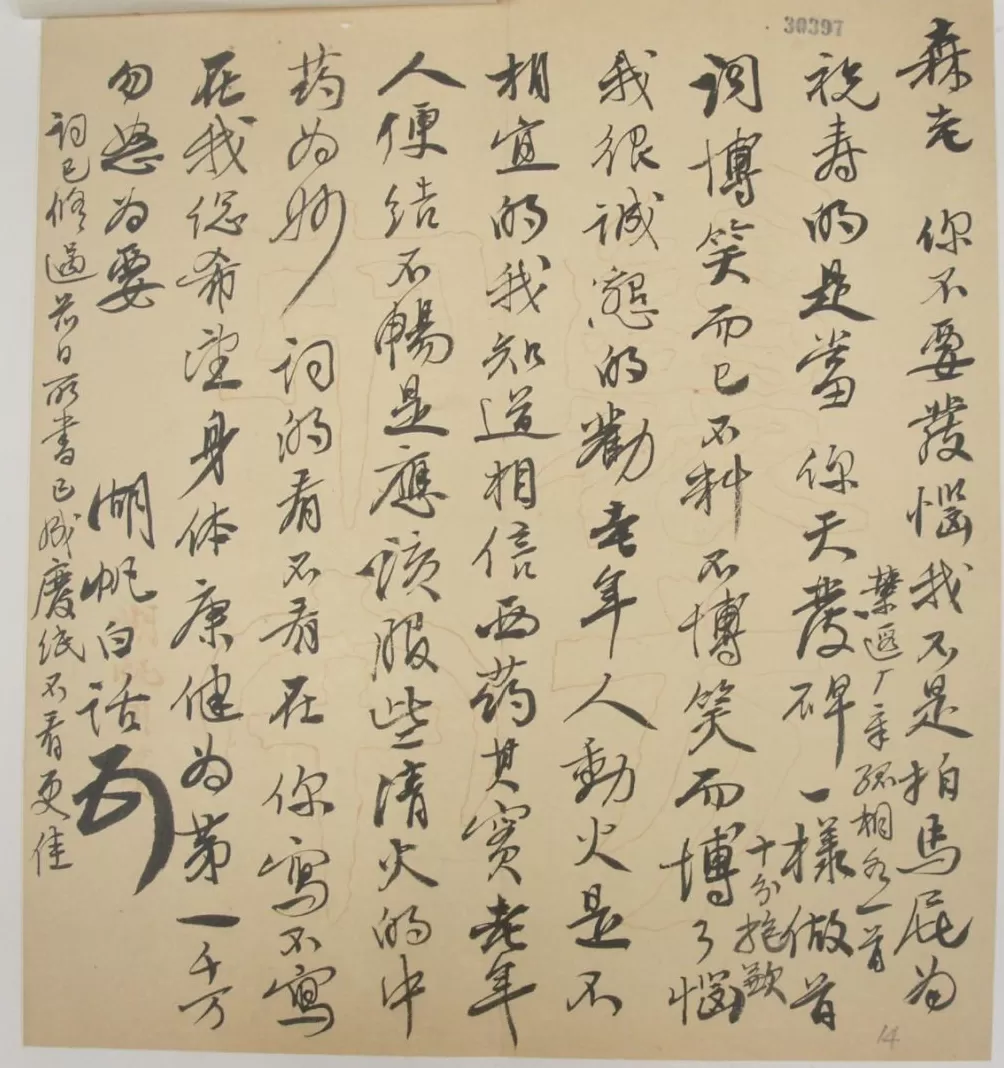 30397
森老 你不要發惱我不是拍馬屁为
祝寿的是當你天發碑一樣做首
葉遐厂辛孤桐各一首
詞博笑而已不料不博笑而博了惱
十分抱歉
我很誠懇的勸老年人動火是不
相宜的我知道相信西药其實老年
人便结不暢是應该服些清火的中
药为妙 詞的看不看在你寫不寫
在我总希望身体康健为第一千万
勿怒为要
湖帆白话
詞已修過前日所書已成廢纸不看更佳
14